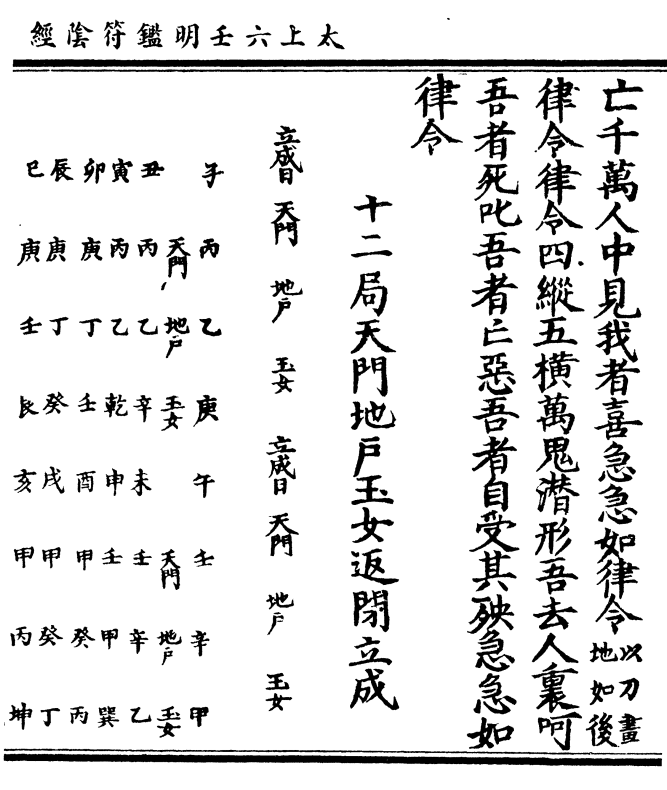 太上六壬明鑑符陰經
亡千萬人中見我者喜急急如律令以刀畫地如後
律令律令四縱五橫萬鬼潜形吾去人裏呵
吾者死叱吾者亡惡吾者自受其殃急急如
律令
十二局天門地戶玉女返閇立成
立成日 天門 地戶 玉女 立成日 天門 地戶 玉女
子 丙 乙 庚 午 壬 辛 甲
天門 地戶 玉女 天門 地戶 玉女
丑 丙 乙 辛 未 壬 辛 乙
寅 丙 乙 乾 申 壬 甲 巽
卯 庚 丁 壬 酉 甲 癸 丙
辰 庚 丁 癸 戌 甲 癸 丁
巳 庚 壬 艮 亥 甲 丙 坤